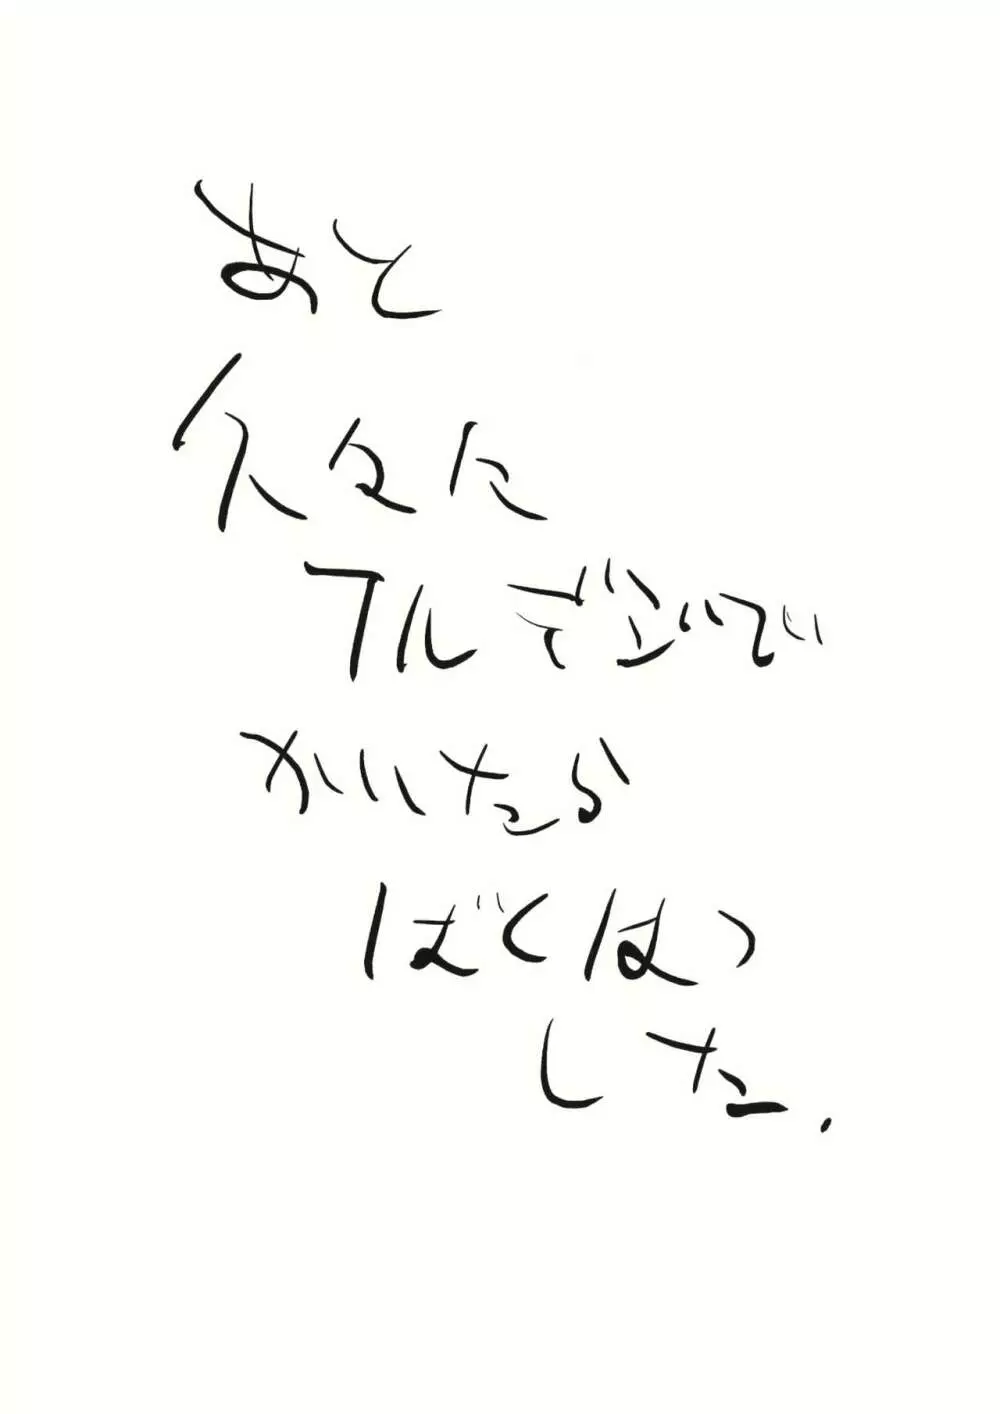 あと
久々に
フルデジで
かいたら
ばくはつ
した.